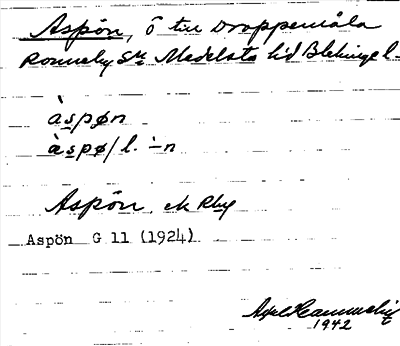 Aspön, ö till Droppemåla
Ronneby Sn Medelsta hd Blekinge l.
àspøn
àspø/l. ∸n
Aspön, ek Rby
Aspön G 11 (1924)
1942